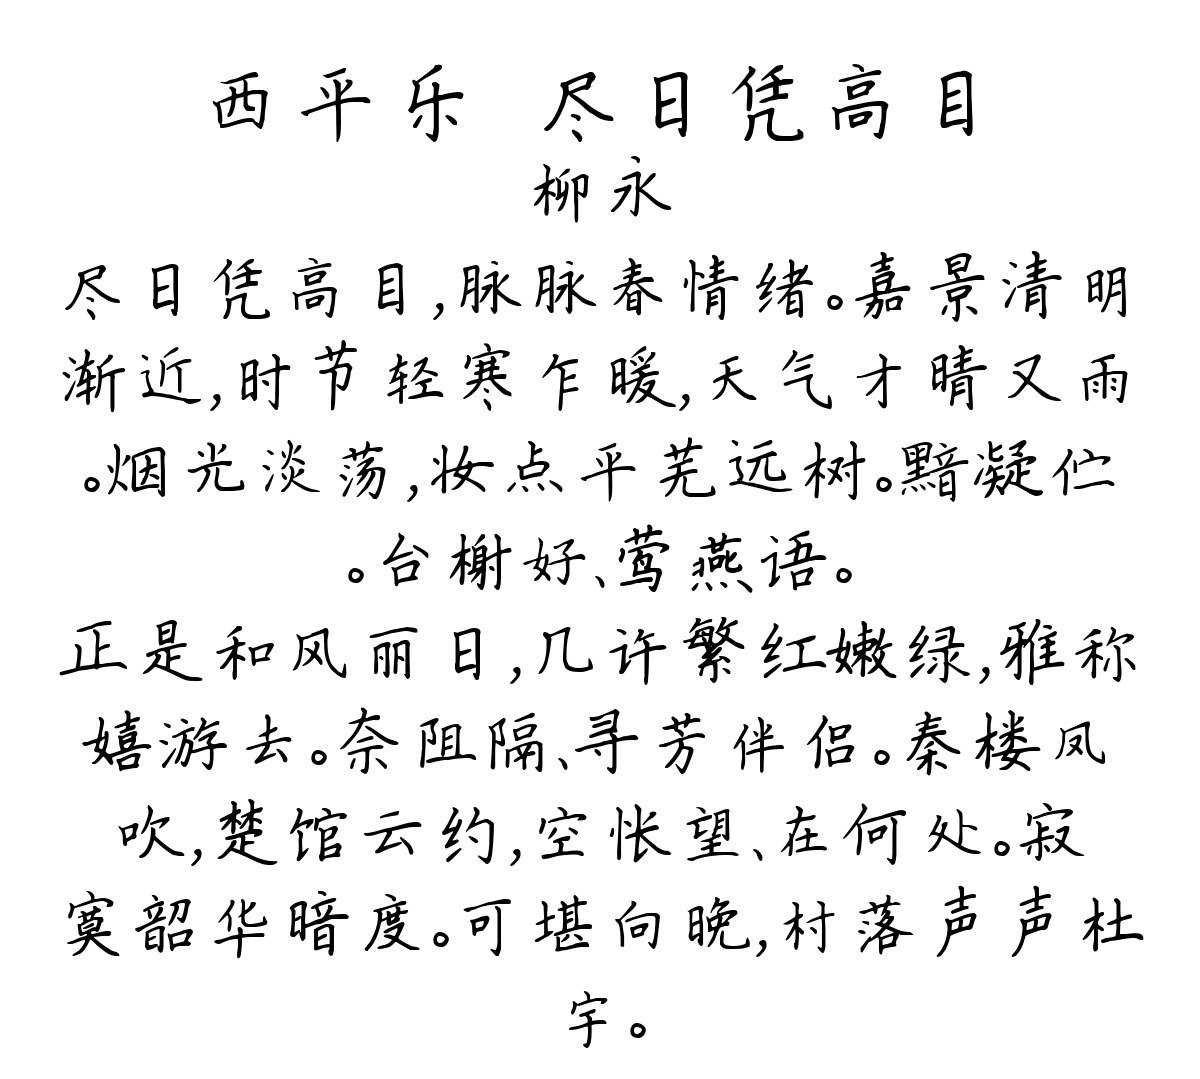 西平乐 尽日凭高目
柳永
尽日凭高目,脉脉春情绪。嘉景清明
渐近,时节轻寒乍暖,天气才晴又雨
。烟光淡荡,妆点平芜远树。黯凝伫
。台榭好、莺燕语。
正是和风丽日,几许繁红嫩绿,雅称
嬉游去。奈阻隔、寻芳伴侣。秦楼凤
吹,楚馆云约,空怅望、在何处。寂
寞韶华暗度。可堪向晚,村落声声杜
宇。